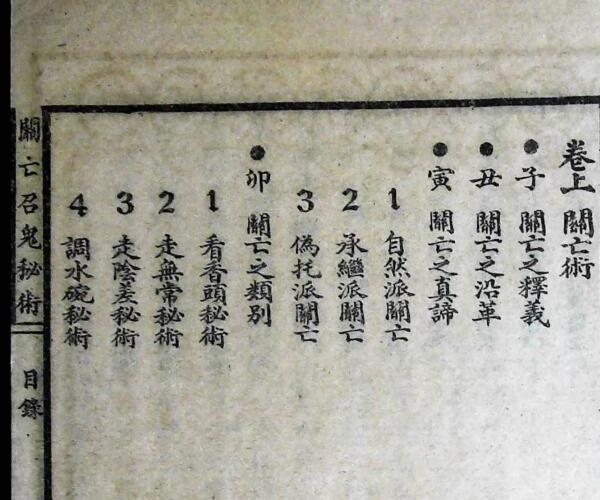 卷上 關亡術
●子 關亡之釋義
●丑 關亡之沿革
●寅 關亡之真諦
1 自然派關亡
2 承繼派關亡
3 偽托派關亡
●卯 關亡之類別
1 看香頭秘術
2 走無常秘術
3 走陰差秘術
4 調水碗秘術
關亡召鬼秘術 目錄